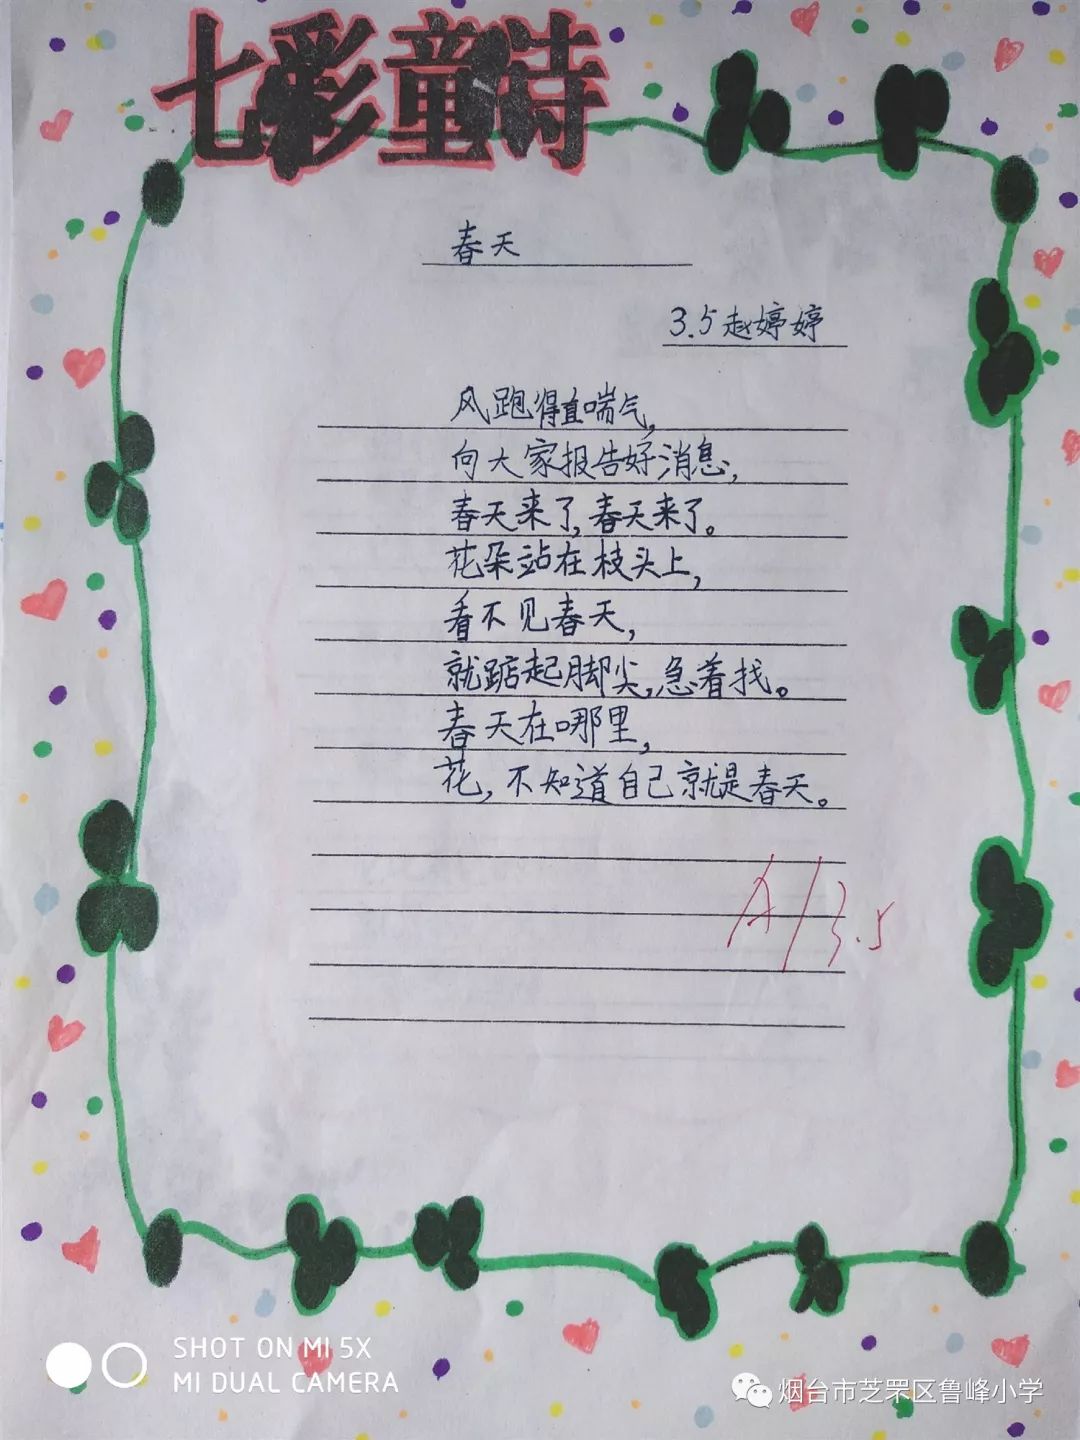 七彩童诗
春天
3.5赵婷婷
风跑得直喘气,
向大家报告好消息,
春天来了,春天来了。
花朵站在枝头上,
看不见春天,
就踮起脚尖,急着找。
春天在哪里,
花,不知道自己就是春天。
A/3.5
SHOT ON MI 5X
MI DUAL CAMERA
烟台市芝罘区鲁峰小学